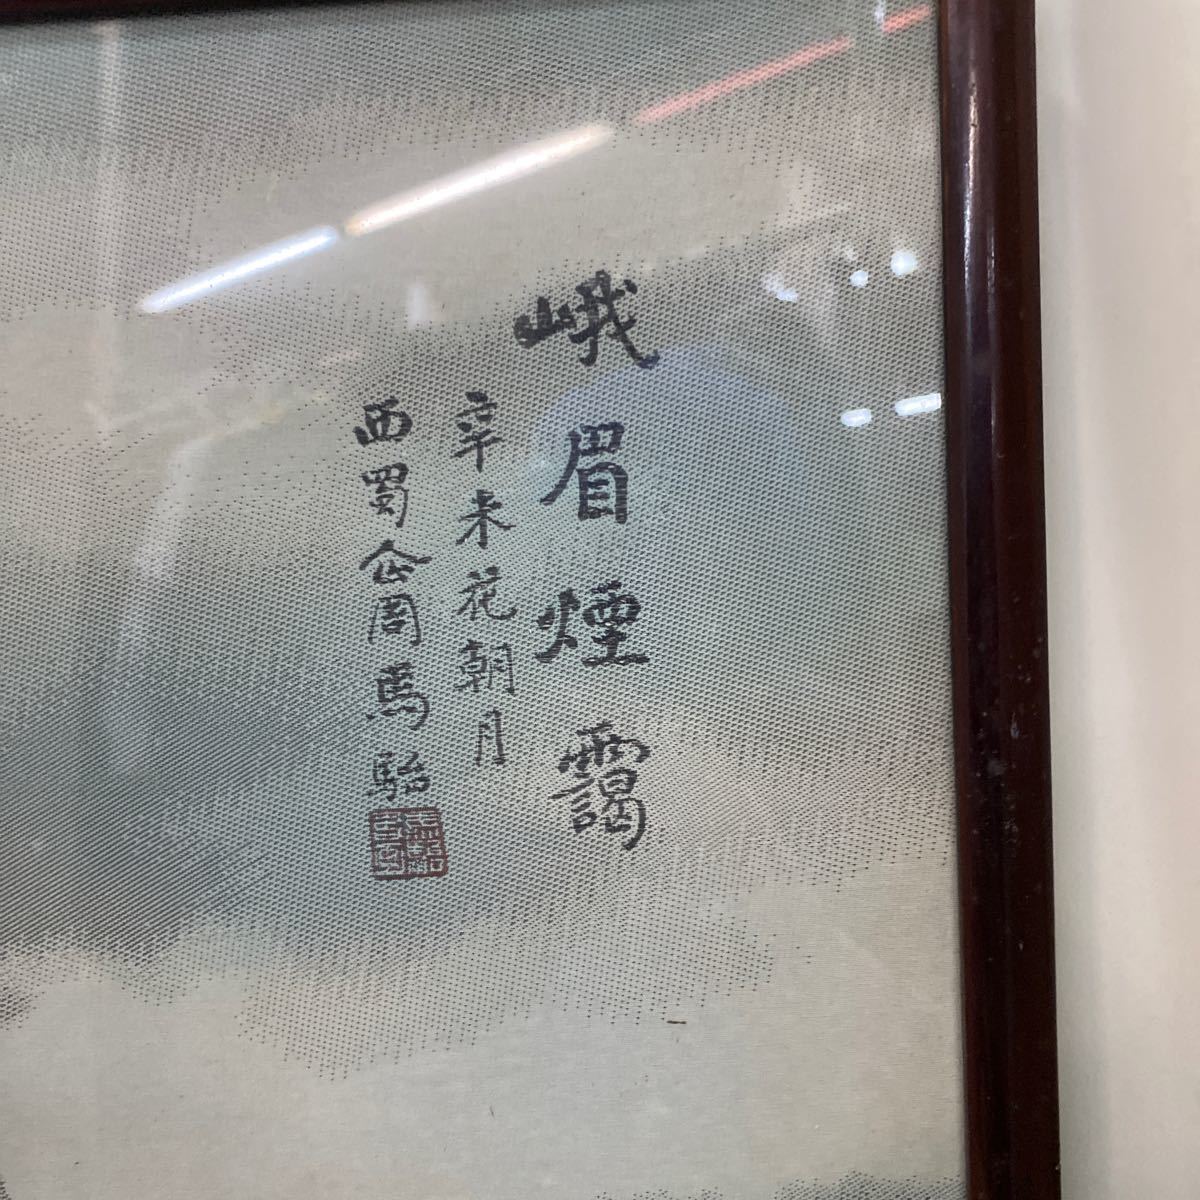 峨眉煙靄
辛未花朝月
西蜀企周馬駘